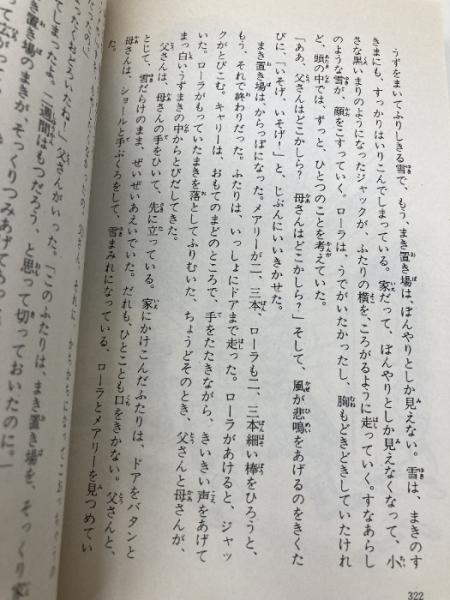 うずをまいてふりしきる雪で、もう、まき置き場は、ぼんやりとしか見えない。雪は、まきのす
きまにも、すっかりはいりこんでしまっている。家だって、ぼんやりとしか見えなくなって、小
さな黒いまりのようになったジャックが、ふたりの横を、ころがるように走っていく。すなあらし
のような雪が、顔をこすっていく。ローラは、うでがいたかったし、胸もどきどきしていたけれ
ど、頭の中では、ずっと、ひとつのことを考えていた。
「ああ、父さんはどこかしら? 母さんはどこかしら?」そして、風が悲鳴をあげるのをきくた
びに、「いそげ、いそげ!」と、じぶんにいいきかせた。
まき置き場は、からっぽになった。メアリーが二、三本、ローラも二、三本細い棒をひろうと、
もう、それで終わりだった。ふたりは、いっしょにドアまで走った。ローラがあけると、ジャッ
クがとびこむ。キャリーは、おもてのまどのところで、手をたたきながら、きいきい声をあげて
いた。ローラがもっていたまきを落としてふりむいた、ちょうどそのとき、父さんと母さんが、
まっ白いうずまきの中からとびだしてきた。
父さんは、母さんの手をひいて、先に立っている。家にかけこんだふたりは、ドアをバタンと
とじて、雪だらけのまま、ぜいぜいあえいでいた。だれも、ひとことも口をきかない。父さんと、
母さんは、ショールと手ぶくろをして、雪まみれになっている、ローラとメアリーを見つめてい
た。
322
てしまったよ。二週間はもつだろう、と思って切っておいたのに。」
父さんがいった。「このふたりは、まき置き場を、そっくり家
まき置き場のまきが、そっくりつみあげてあっ